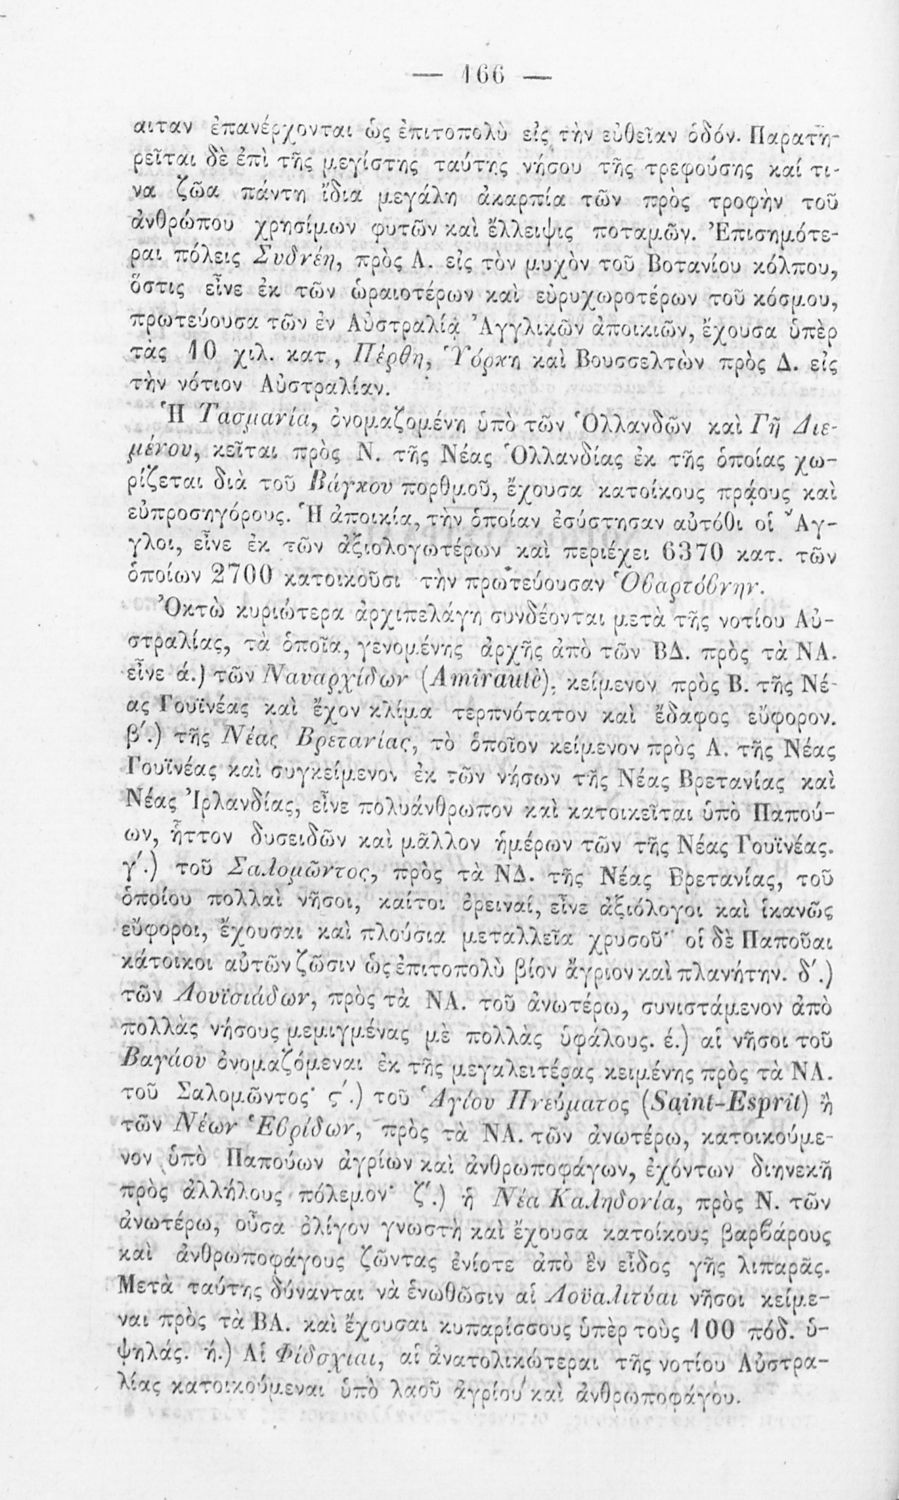 — 166 —
αιταν ἐπανέρχονται ὡς ἐπιτοπολὺ εἰς τὴν εὐθεῖαν ὁδόν. Παρατη-
ρεῖται δὲ ἐπὶ τῆς μεγίστης ταύτης νήσου τῆς τρεφούσης καί τι-
να ζῶα πάντη ἴδια μεγάλη ἀκαρπία τῶν πρὸς τροφὴν τοῦ
ἀνθρώπου χρησίμων φυτῶν καὶ ἔλλειψις ποταμῶν. Ἐπισημότε-
ραι πόλεις Συδνέη, πρὸς Α. εἰς τὸν μυχὸν τοῦ Βοτανίου κόλπου,
ὅστις εἶνε ἐκ τῶν ὡραιοτέρων καὶ εὐρυχωροτέρων τοῦ κόσμου,
πρωτεύουσα τῶν ἐν Αὐστραλίᾳ Ἀγγλικῶν ἀποικιῶν, ἔχουσα ὑπὲρ
τὰς 10 χιλ. κατ., Πέρθη, Ὑόρκη καὶ Βουσσελτὼν πρὸς Δ. εἰς
τὴν νότιον Αὐστραλίαν.
Ἡ Τασμανία, ὀνομαζομένη ὑπὸ τῶν Ὁλλανδῶν καὶ Γῆ Διε-
μένου, κεῖται πρὸς Ν. τῆς Νέας Ὁλλανδίας ἐκ τῆς ὁποίας χω-
ρίζεται διὰ τοῦ Βάγκου πορθμοῦ, ἔχουσα κατοίκους πράους καὶ
εὐπροσηγόρους. Ἡ ἀποικία, τὴν ὁποίαν ἐσύστησαν αὐτόθι οἱ Ἄγ-
γλοι, εἶνε ἐκ τῶν ἀξιολογωτέρων καὶ περιέχει 6370 κατ. τῶν
ὁποίων 2700 κατοικοῦσι τὴν πρωτεύουσαν Ὁβαρτόβνην.
Ὀκτὼ κυριώτερα ἀρχιπελάγη συνδέονται μετὰ τῆς νοτίου Αὐ-
στραλίας, τὰ ὁποῖα, γενομένης ἀρχῆς ἀπὸ τῶν ΒΔ. πρὸς τὰ ΝΑ.
εἶνε ά.) τῶν Ναυαρχίδων (Amirauté), κείμενον πρὸς Β. τῆς Νέ-
ας Γουϊνέας καὶ ἔχον κλίμα τερπνότατον καὶ ἔδαφος εὔφορον.
β΄.) τῆς Νέας Βρετανίας, τὸ ὁποῖον κείμενον πρὸς Α. τῆς Νέας
Γουϊνέας καὶ συγκείμενον ἐκ τῶν νήσων τῆς Νέας Βρετανίας καὶ
Νέας Ἰρλανδίας, εἶνε πολυάνθρωπον καὶ κατοικεῖται ὑπὸ Παπού-
ων, ἧττον δυσειδῶν καὶ μᾶλλον ἡμέρων τῶν τῆς Νέας Γουϊνέας.
γ΄.) τοῦ Σαλομῶντος, πρὸς τὰ ΝΔ. τῆς Νέας Βρετανίας, τοῦ
ὁποίου πολλαὶ νῆσοι, καίτοι ὀρειναί, εἶνε ἀξιόλογοι καὶ ἱκανῶς
εὔφοροι, ἔχουσαι καὶ πλούσια μεταλλεῖα χρυσοῦ· οἱ δὲ Παποῦαι
κάτοικοι αὐτῶν ζῶσιν ὡς ἐπιτοπολὺ βίον ἄγριον καὶ πλανήτην. δ΄.)
τῶν Λουϊσιάδων, πρὸς τὰ ΝΑ. τοῦ ἀνωτέρω, συνιστάμενον ἀπὸ
πολλὰς νήσους μεμιγμένας μὲ πολλὰς ὑφάλους. έ.) αἱ νῆσοι τοῦ
Βαγάου ὀνομαζόμεναι ἐκ τῆς μεγαλειτέρας κειμένης πρὸς τὰ ΝΑ.
τοῦ Σαλομῶντος· ς΄.) τοῦ Ἁγίου Πνεύματος (Saint-Esprit) ἢ
τῶν Νέων Ἑβρίδων, πρὸς τὰ ΝΑ. τῶν ἀνωτέρω, κατοικούμε-
νον ὑπὸ Παπούων ἀγρίων καὶ ἀνθρωποφάγων, ἐχόντων διηνεκῆ
πρὸς ἀλλήλους πόλεμον· ζ΄.) ἡ Νέα Καληδονία, πρὸς Ν. τῶν
ἀνωτέρω, οὖσα ὀλίγον γνωστὴ καὶ ἔχουσα κατοίκους βαρβάρους
καὶ ἀνθρωποφάγους ζῶντας ἐνίοτε ἀπὸ ἓν εἶδος γῆς λιπαρᾶς.
Μετὰ ταύτης δύνανται νὰ ἑνωθῶσιν αἱ Λοϋαλιτύαι νῆσοι κείμε-
ναι πρὸς τὰ ΒΑ. καὶ ἔχουσαι κυπαρίσσους ὑπὲρ τοὺς 100 πόδ. ὑ-
ψηλάς. ή.) Αἱ Φίδσχιαι, αἱ ἀνατολικώτεραι τῆς νοτίου Αὐστρα-
λίας κατοικούμεναι ὑπὸ λαοῦ ἀγρίου καὶ ἀνθρωποφάγου.